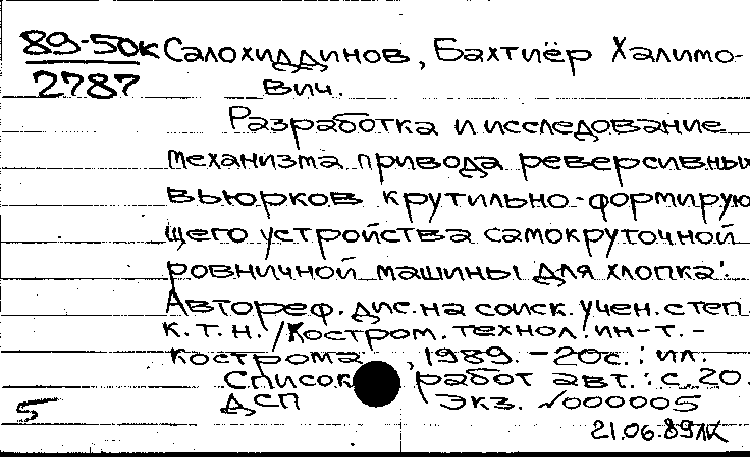 89-50к Салохиддинов, Бахтиёр Халимо-
2787 вич.
Разработка и исследование
механизма привода реверсивных
вьюрков крутильно-формирую
щего устройства самокруточной
ровничной машины для хлопка:
Автореф. дис. на соиск. учен. степ.
к.т.н. /Костром. технол. ин-т. -
Кострома, 1989. - 20с.: ил.
Список работ авт.: с. 20.
5 ДСП Экз. №000005
21.06.89